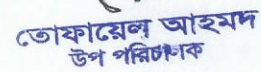 তোফায়েল আহমদ
উপ পরিচালক